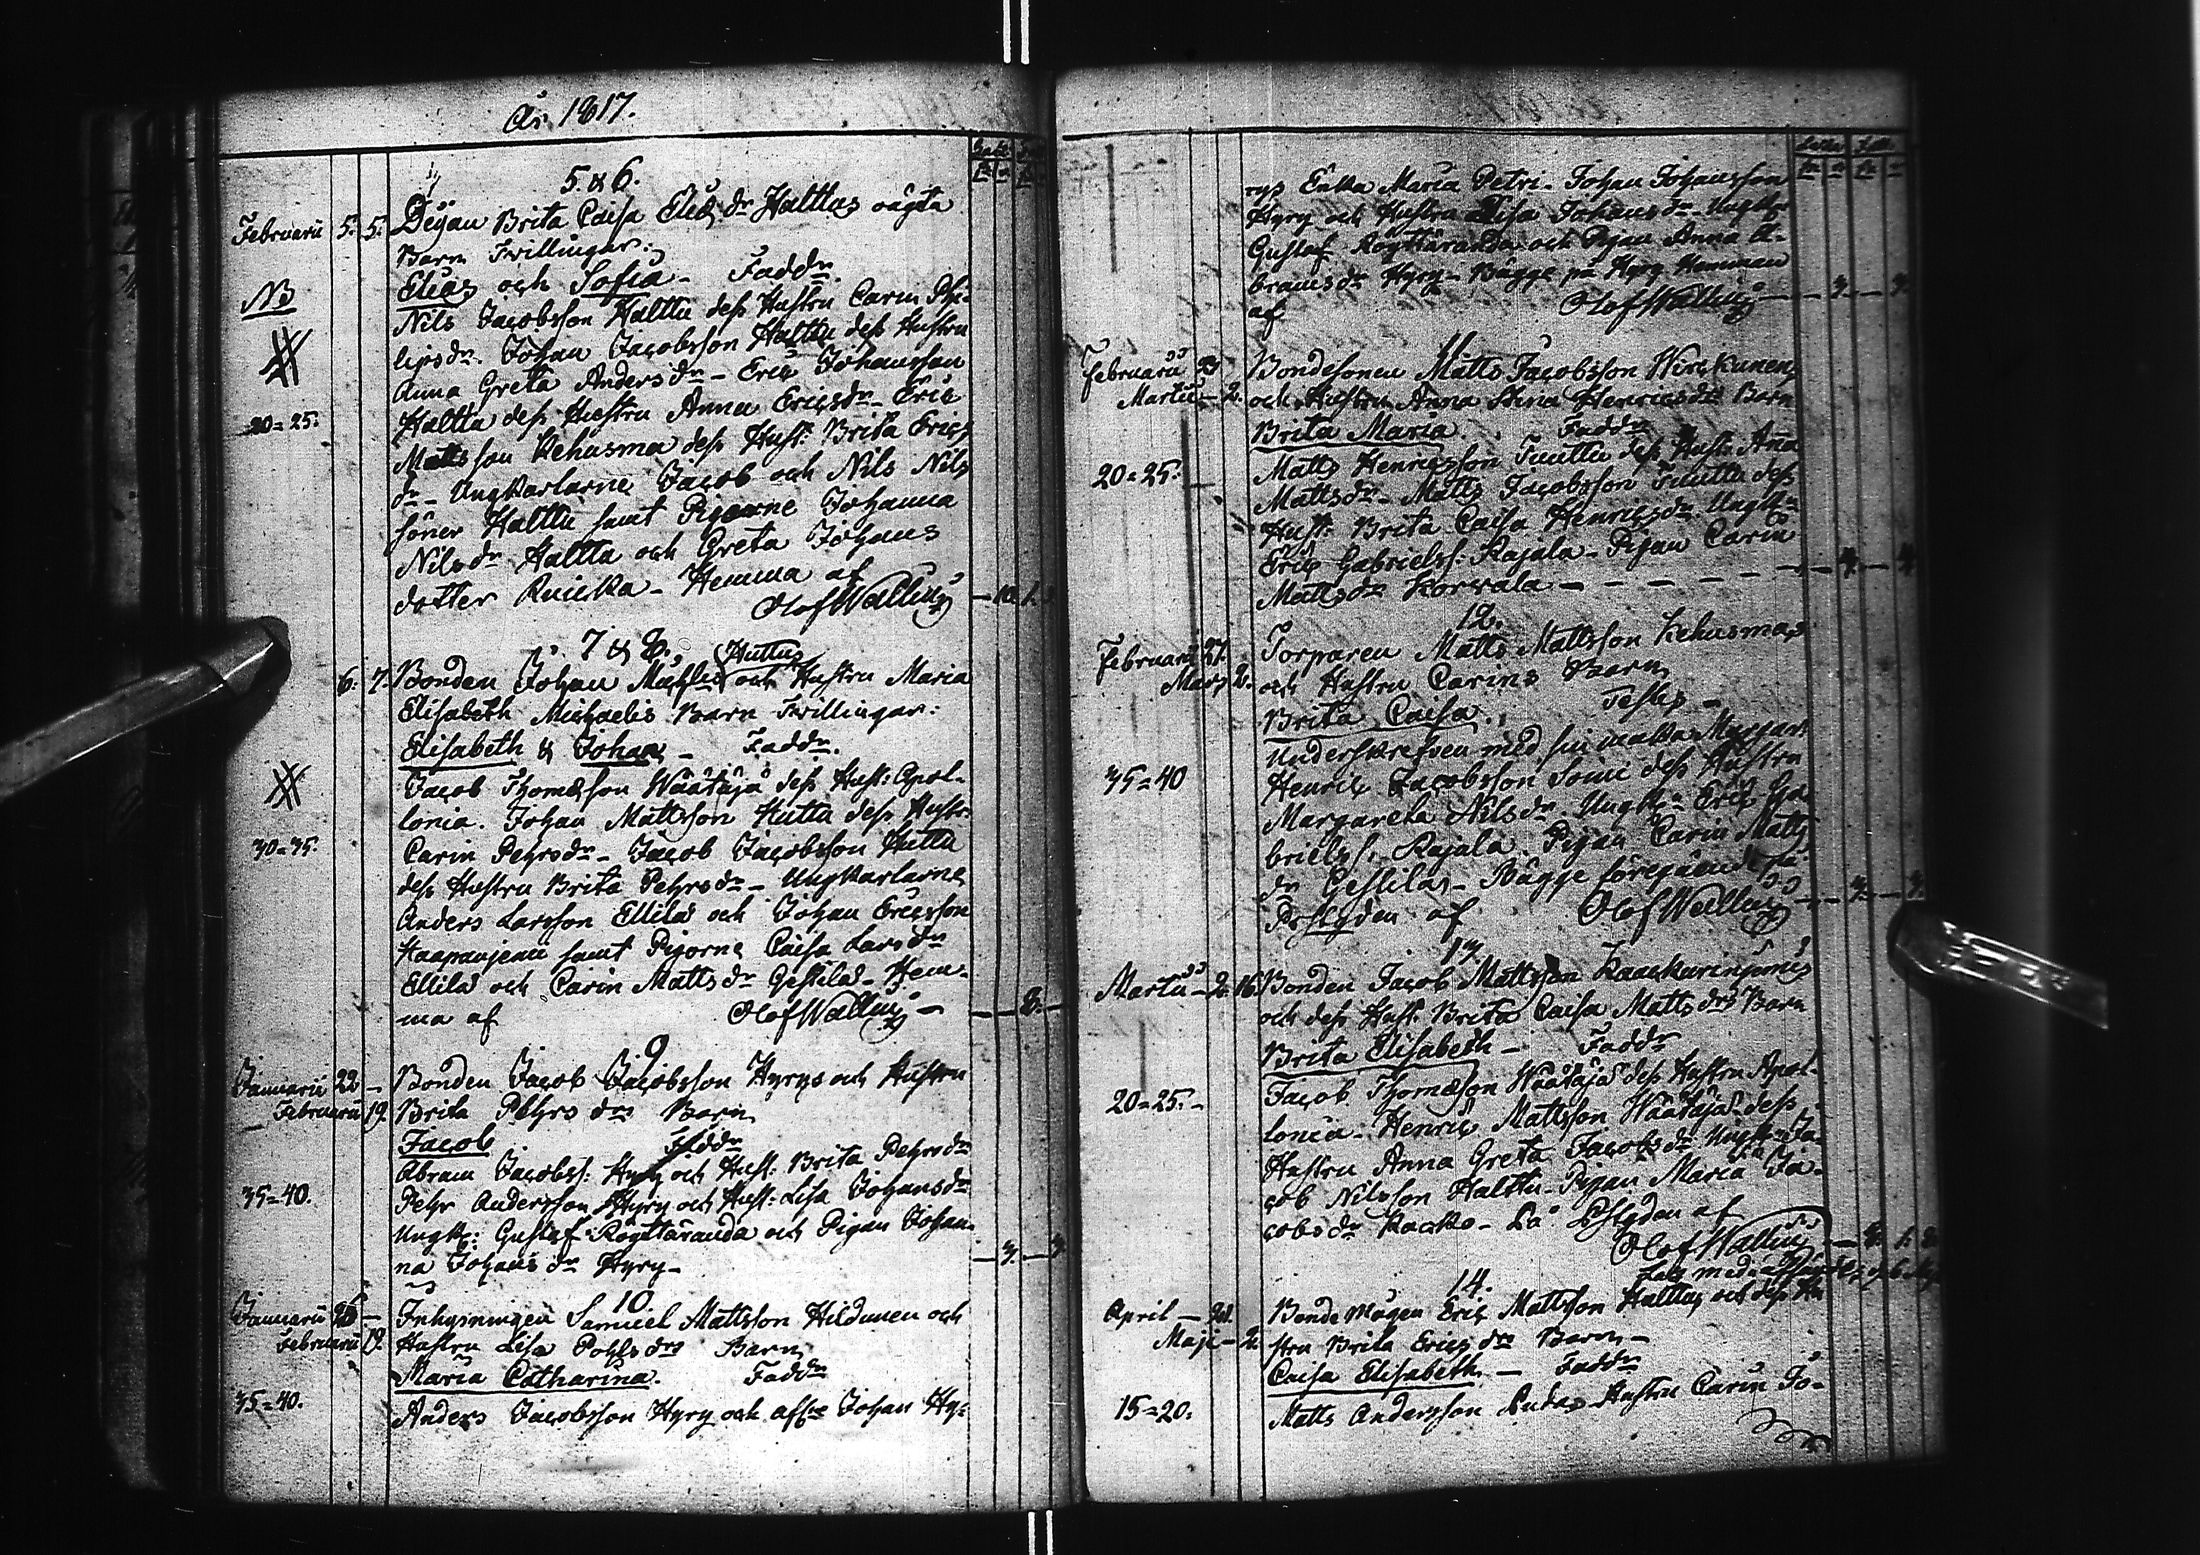 År 1817.
5. & 6.
Februarii 5. 5. Pigan Brita Caisa Elias dr Halttas oägta
Barn Twillingar:
Elias och Sofia - Faddr.
NB Nils Jacobsson Halttu dess Hustru Carin Phi-
lipsdr. Johan Jacobsson Halttu dess Hustru
Anna Greta Andersdr - Eric Johansson
20=25. Haltta dess Hustru Anna Ericsdr - Eric
Mattsson Kehusma dess Hust: Brita Erics
dr - Ungkarlarne Jacob och Nils Nils
söner Halttu samt Pigorne Johanna
Nilsdr Haltta och Greta Johans
dotter - Hemma af
Olof Wallin - 10. 1.
7 & 8. Huttus
6. 7. Bonden Johan och Hustru Maria
Elisabeth Michaelis Barn Twillingar:
Elisabeth & Johan - Faddr.
Jacob Thomasson Wäätäjä dess Hust: Apol-
lonia. Johan Mattsson Hutta dess Hustr:
30=35. Carin Pehrsdr - Jacob Jacobsson Hutta
dess Hustru Brita Pehrsdr - Ungkarlarne
Anders Larsson Ellilä och Johan Ericsson
Haapaujenu samt Pigorne Caisa Larsdr
Ellilä och Carin Mattsdr Gestilä - Hem-
ma af Olof Wallin - - 8. -
9
Januarii 22 - Bonden Jacob Jacobsson Hyrys och Hustru
Februarii 19. Brita Pehrs drs Barn
Jacob Faddr
Abram Jacobss: Hyry och Hust: Brita Pehrsdr
35=40. Pehr Andersson Hyry och Hust: Lisa Johansdr
Ungk: Gustaf Röyttäranda och Pigan Johan-
na Johans dr Hyry - - 3. - 3.
10.
Januarii - Inhysningen Samuel Mattsson Hildunen och
Februarii 19. Hustru Lisa Pohls drs Barn
Maria Catharina. Faddr
35=40. Anders Jacobsson Hyry och Johan Hy-
rys Enka Maria Petri - Johan Johansson
Hyry och Hustru Lisa Johansdr - Ungkr
Gustaf Röyttäranda och Pigan Anna A-
bramsdr Hyry - Bägge på Hyry Hemman
af Olof Wallin - - 3. - 3.
11.
Februarii Bondesonen Matts Jacobsson Wirckunens
Martii - 2. och Hustru Anna Stina Henricsdrs Barn
Brita Maria. Faddr
20=25. Matts Henricsson Tuuttu dess Hust: Anna
Mattsdr - Matts Jacobsson Tuuttu dess
Hust: Brita Caisa Henricsdr Ungk:
Eric Gabrielss: Kajala - Pigan Carin
Mattsdr Korvala - - - 4. - 4.
12.
Februarii 27. Torparen Matts Mattsson Kehusmas
Mars 2. och Hustru Carins Barn
Brita Caisa. Testes -
Underskrefven med sin maka Margar:
35=40 Henric Jacobsson Soini dess Hustru
Margareta Nilsdr - Ungk: Eric Ga-
briels s. Kajala. Pigan Carin Matts
dr Gestilä - Bägge föregående på
af Olof Wallin - - 3. - 3.
13
Martii - 2. 16. Bonden Jacob Mattsson
och dess Hust: Brita Caisa Mattsdrs Barn
Brita Elisabeth - Faddr
20=25. - Jacob Thomasson Wäätäjä dess Hustru Apol-
lonia - Henric Mattsson Wäätäjä dess
Hustru Anna Greta Jacobsdr Ungk: Ja-
cob Nilsson Halttu - Pigan Maria Ja-
cobsdr Kacko - af
Olof Wallin - 8. 1.
14.
April - 21. Bonde Mågen Eric Mattsson Halttus och dess Hu
Maji - 2. stru Brita Erics drs Barn -
Caisa Elisabeth - Faddr
15=20. Matts Andersson Hustru Carin Jo-